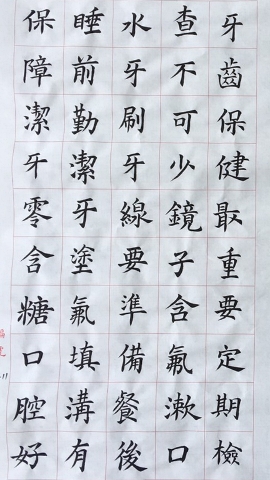 牙齒保健最重要定期檢
查不可少鏡子含氟漱口
水牙刷牙線要準備餐後
睡前勤潔牙塗氟填溝有
保障潔牙零含糖口腔好